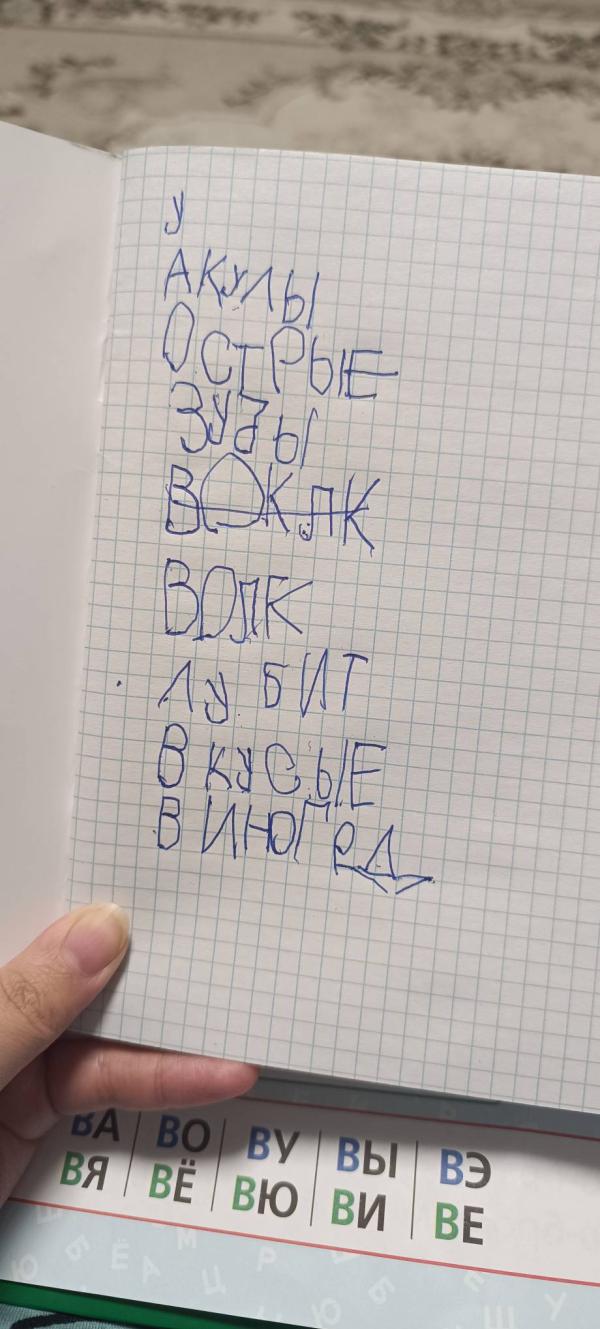 У
АКУЛЫ
ОСТРЫЕ
ЗУБЫ
ВОКЛК
ВОЛК
ЛУБИТ
ВКУСЫЕ
ВИНОГРД
ВА ВО ВУ ВЫ ВЭ
ВЯ ВЁ ВЮ ВИ ВЕ